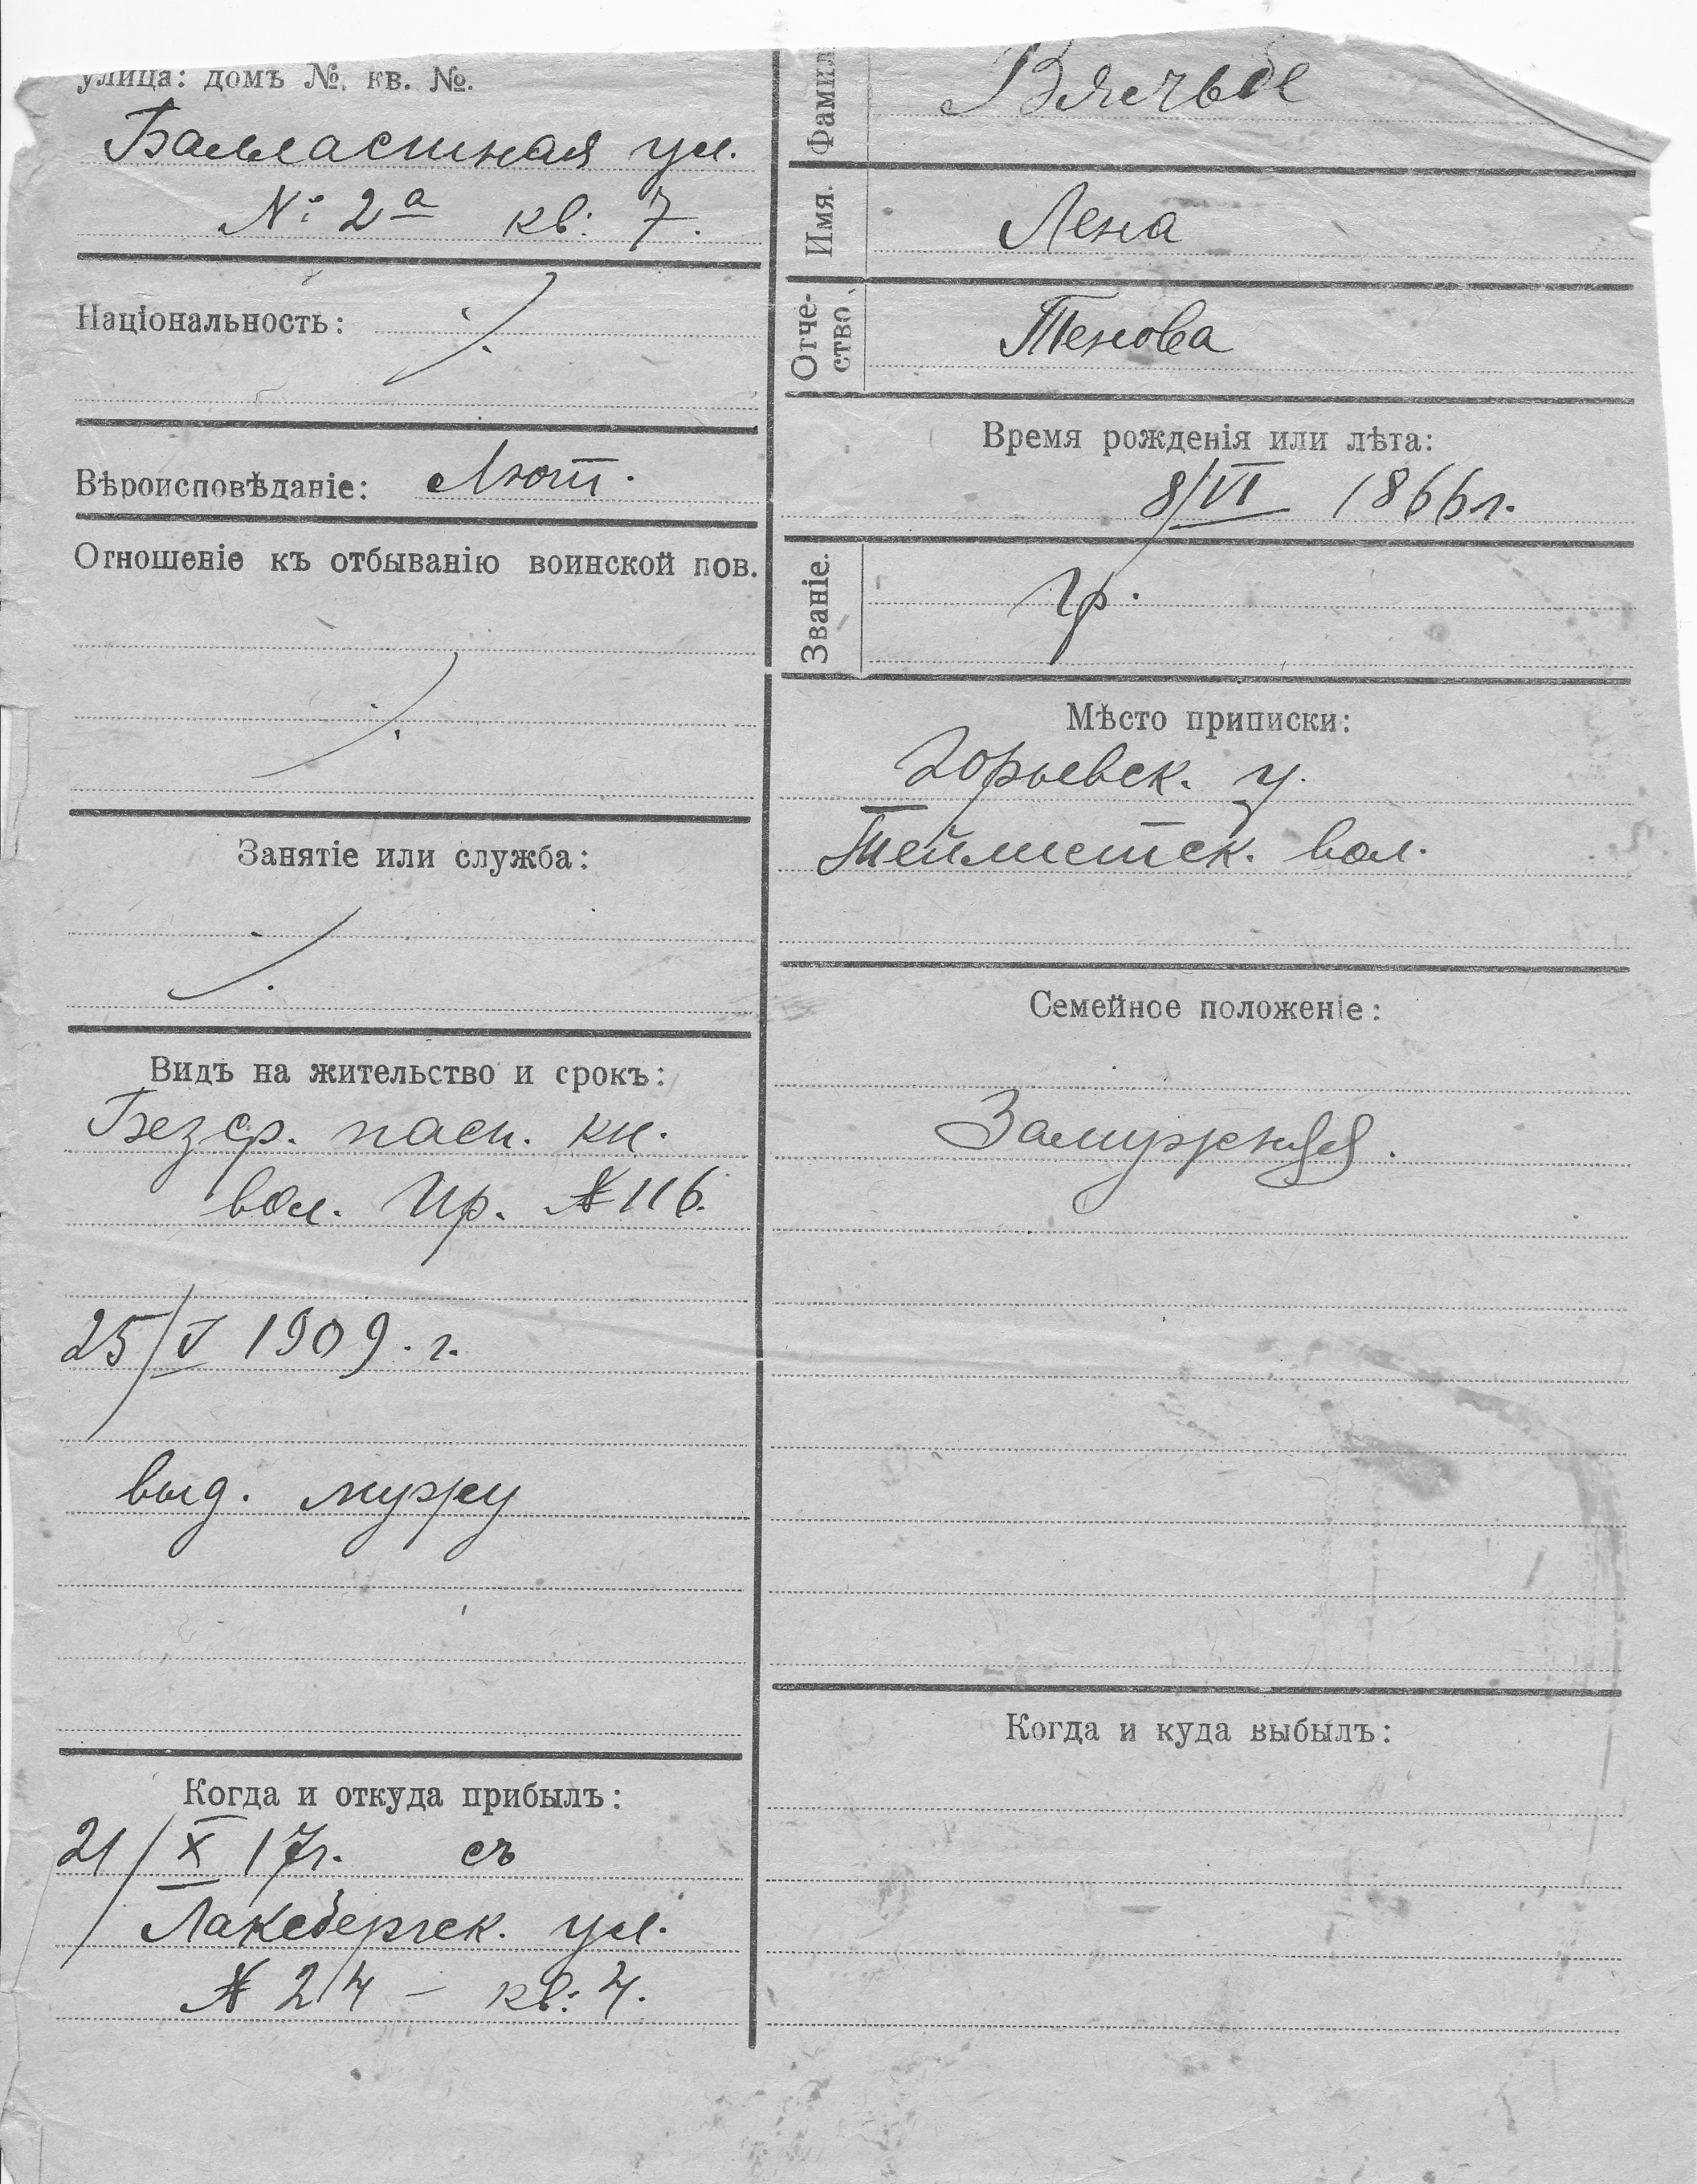 улица: домъ №, кв. №.
Балластная ул.
№ 2а кв: 7.
Національность:
Вѣроисповѣданіе: Лют.
Отношеніе къ отбыванію воинской пов.
Занятіе или служба:
Видъ на жительство и срокъ:
Безср. пасп. кн.
вол. Пр. № 116.
25/V 1909. г.
выд. мужу
Когда и откуда прибылъ:
21/X 17г. съ
Лаксбергск. ул.
№ 24 – кв: 4.
Фамил
Имя. Лена
Отче-
ство. Тенова
Время рожденія или лѣта:
8/VI 1866г.
Званіе. гр.
Мѣсто приписки:
Юрьевск. у.
вол.
Семейное положеніе:
Замужняя.
Когда и куда выбылъ: